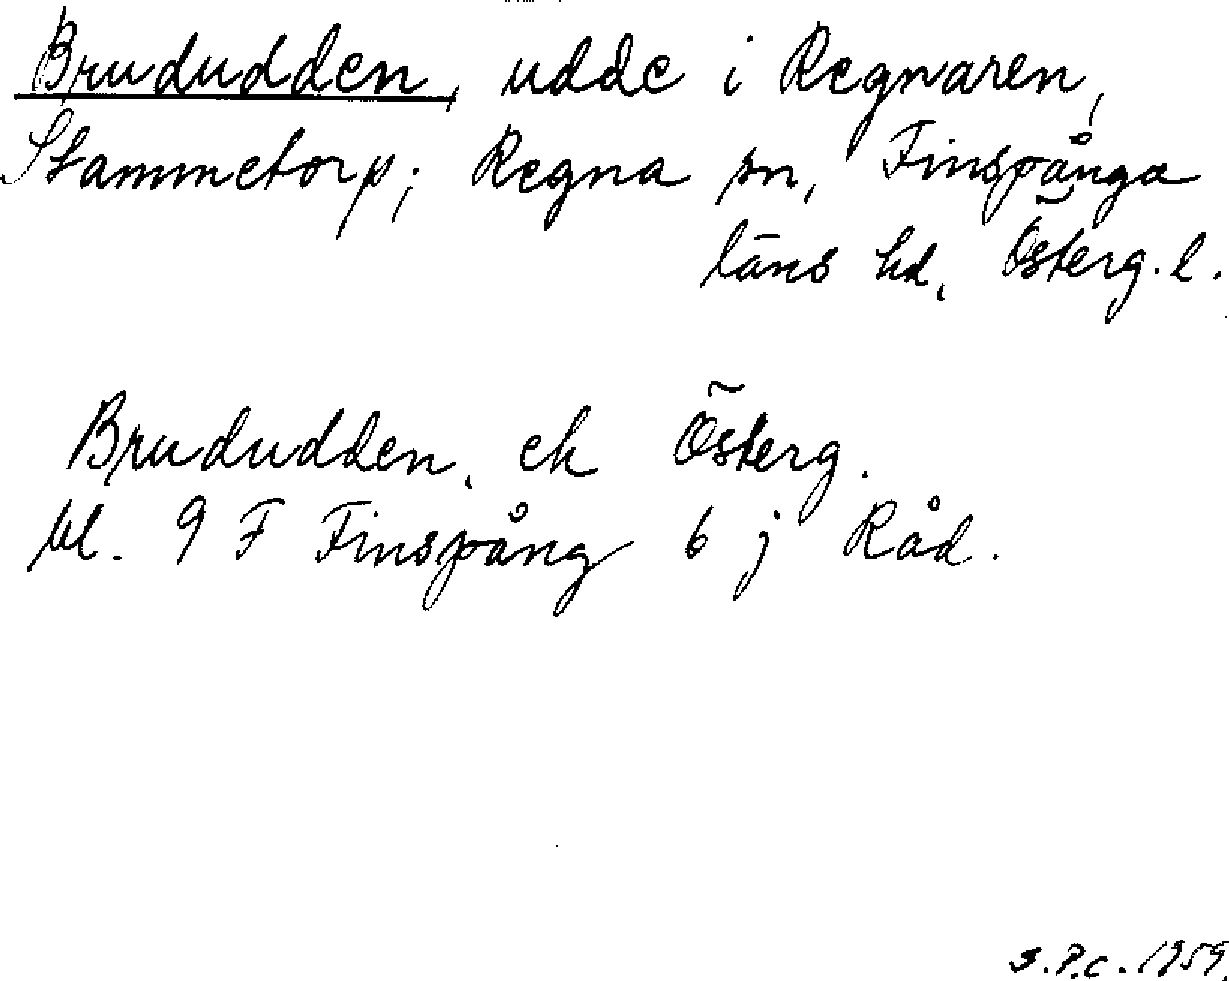 Brududden, udde i Regnaren,
Stammetorp; Regna sn, Finspånga
läns hd, Österg. l.
Brududden, ek Österg.
bl. 9 F Finspång 6 j Råd.
S.P.C. 1959.